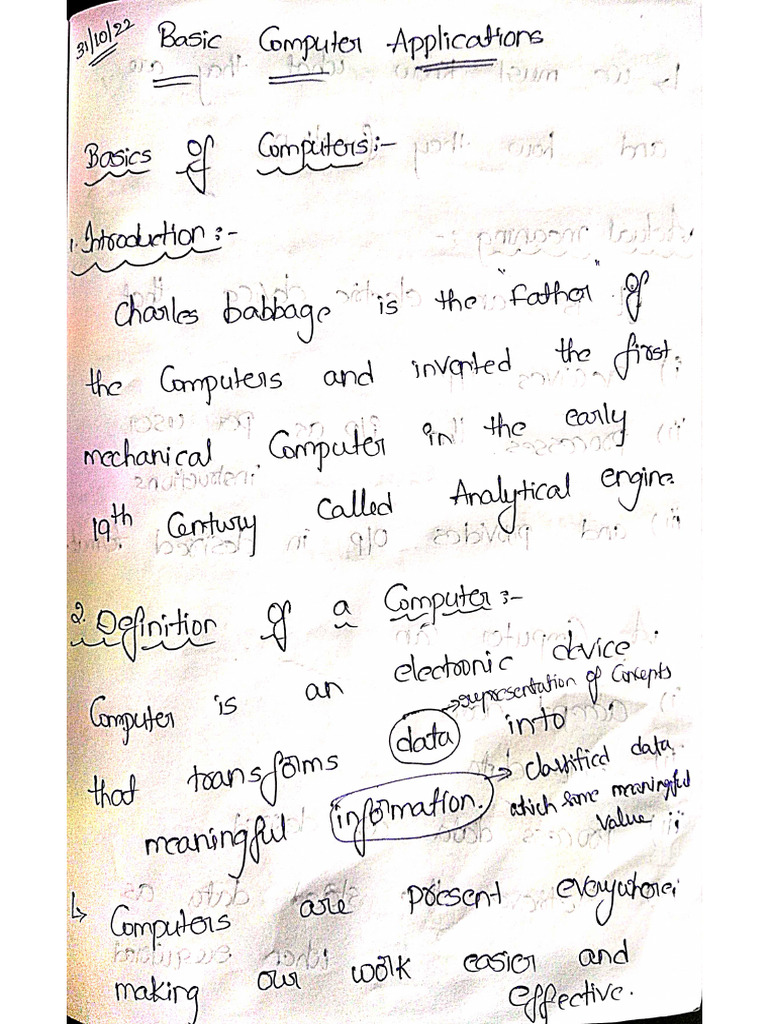 31/10/22
Basic Computer Applications
Basics of Computers:-
1. Introduction:-
Charles babbage is the "father" of
the Computers and invented the first
mechanical Computer in the early
19th Century called Analytical engine.
2. Definition of a Computer:-
Computer is an electronic device
that transforms data into
→representation of Concepts
meaningful information.
→ classified data
which some meaningful
value
↳ Computers are present everywhere
making our work easier and
effective.